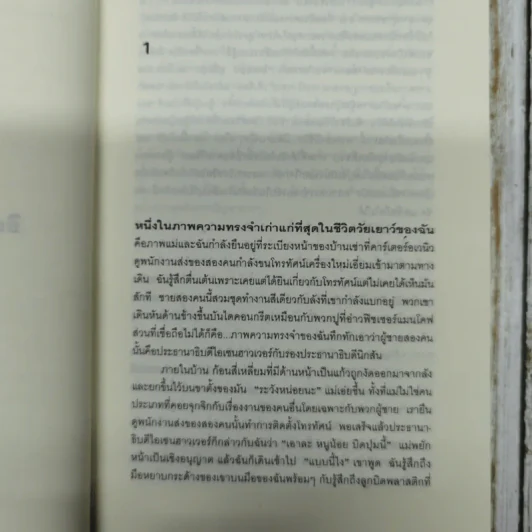 1
หนึ่งในภาพความทรงจำเก่าแก่ที่สุดในชีวิตวัยเยาว์ของฉัน
คือภาพแม่และฉันกำลังยืนอยู่ที่ระเบียงหน้าของบ้านเช่าที่คาร์เตอร์อเวนิว
ดูพนักงานส่งของสองคนกำลังขนโทรทัศน์เครื่องใหม่เอี่ยมเข้ามาตามทาง
เดิน ฉันรู้สึกตื่นเต้นเพราะเคยแต่ได้ยินเกี่ยวกับโทรทัศน์แต่ไม่เคยได้เห็นมัน
สักที ชายสองคนนี้สวมชุดทำงานสีเดียวกับลังที่เขากำลังแบกอยู่ พวกเขา
เดินหันด้านข้างขึ้นบันไดคอนกรีตเหมือนกับพวกปูที่อ่าวฟิชเชอร์แมนโคฟ
ส่วนที่เชื่อถือไม่ได้ก็คือ...ภาพความทรงจำของฉันทึกทักเอาว่าผู้ชายสองคน
นั้นคือประธานาธิบดีไอเซนฮาวเวอร์กับรองประธานาธิบดีนิกสัน
ภายในบ้าน ก้อนสี่เหลี่ยมที่มีด้านหน้าเป็นแก้วถูกงัดออกมาจากลัง
และยกขึ้นไว้บนขาตั้งของมัน "ระวังหน่อยนะ" แม่เอ่ยขึ้น ทั้งที่แม่ไม่ใช่คน
ประเภทที่คอยจุกจิกกับเรื่องงานของคนอื่นโดยเฉพาะกับพวกผู้ชาย เรายืน
ดูพนักงานส่งของสองคนนั้นทำการติดตั้งโทรทัศน์ พอเสร็จแล้วประธานา-
ธิบดีไอเซนฮาวเวอร์ก็กล่าวกับฉันว่า "เอาละ หนูน้อย บิดปุ่มนี้" แม่พยัก
หน้าเป็นเชิงอนุญาต แล้วฉันก็เดินเข้าไป "แบบนี้ไง" เขาพูด ฉันรู้สึกถึง
มือหยาบกระด้างของเขาบนมือของฉันพร้อมๆ กับรู้สึกถึงลูกบิดพลาสติกที่